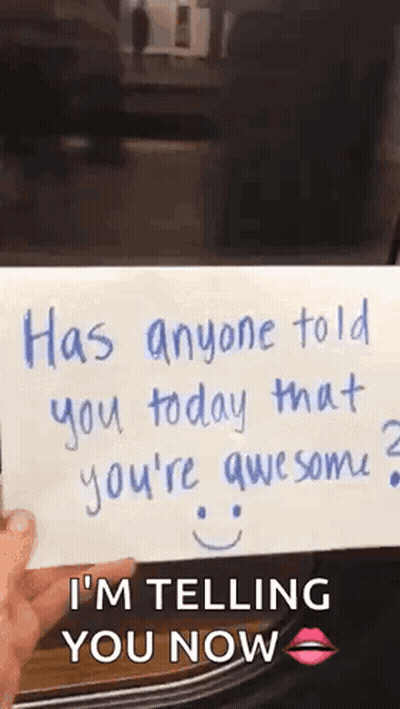 Has anyone told
you today that
you're awesome?
I'M TELLING
YOU NOW